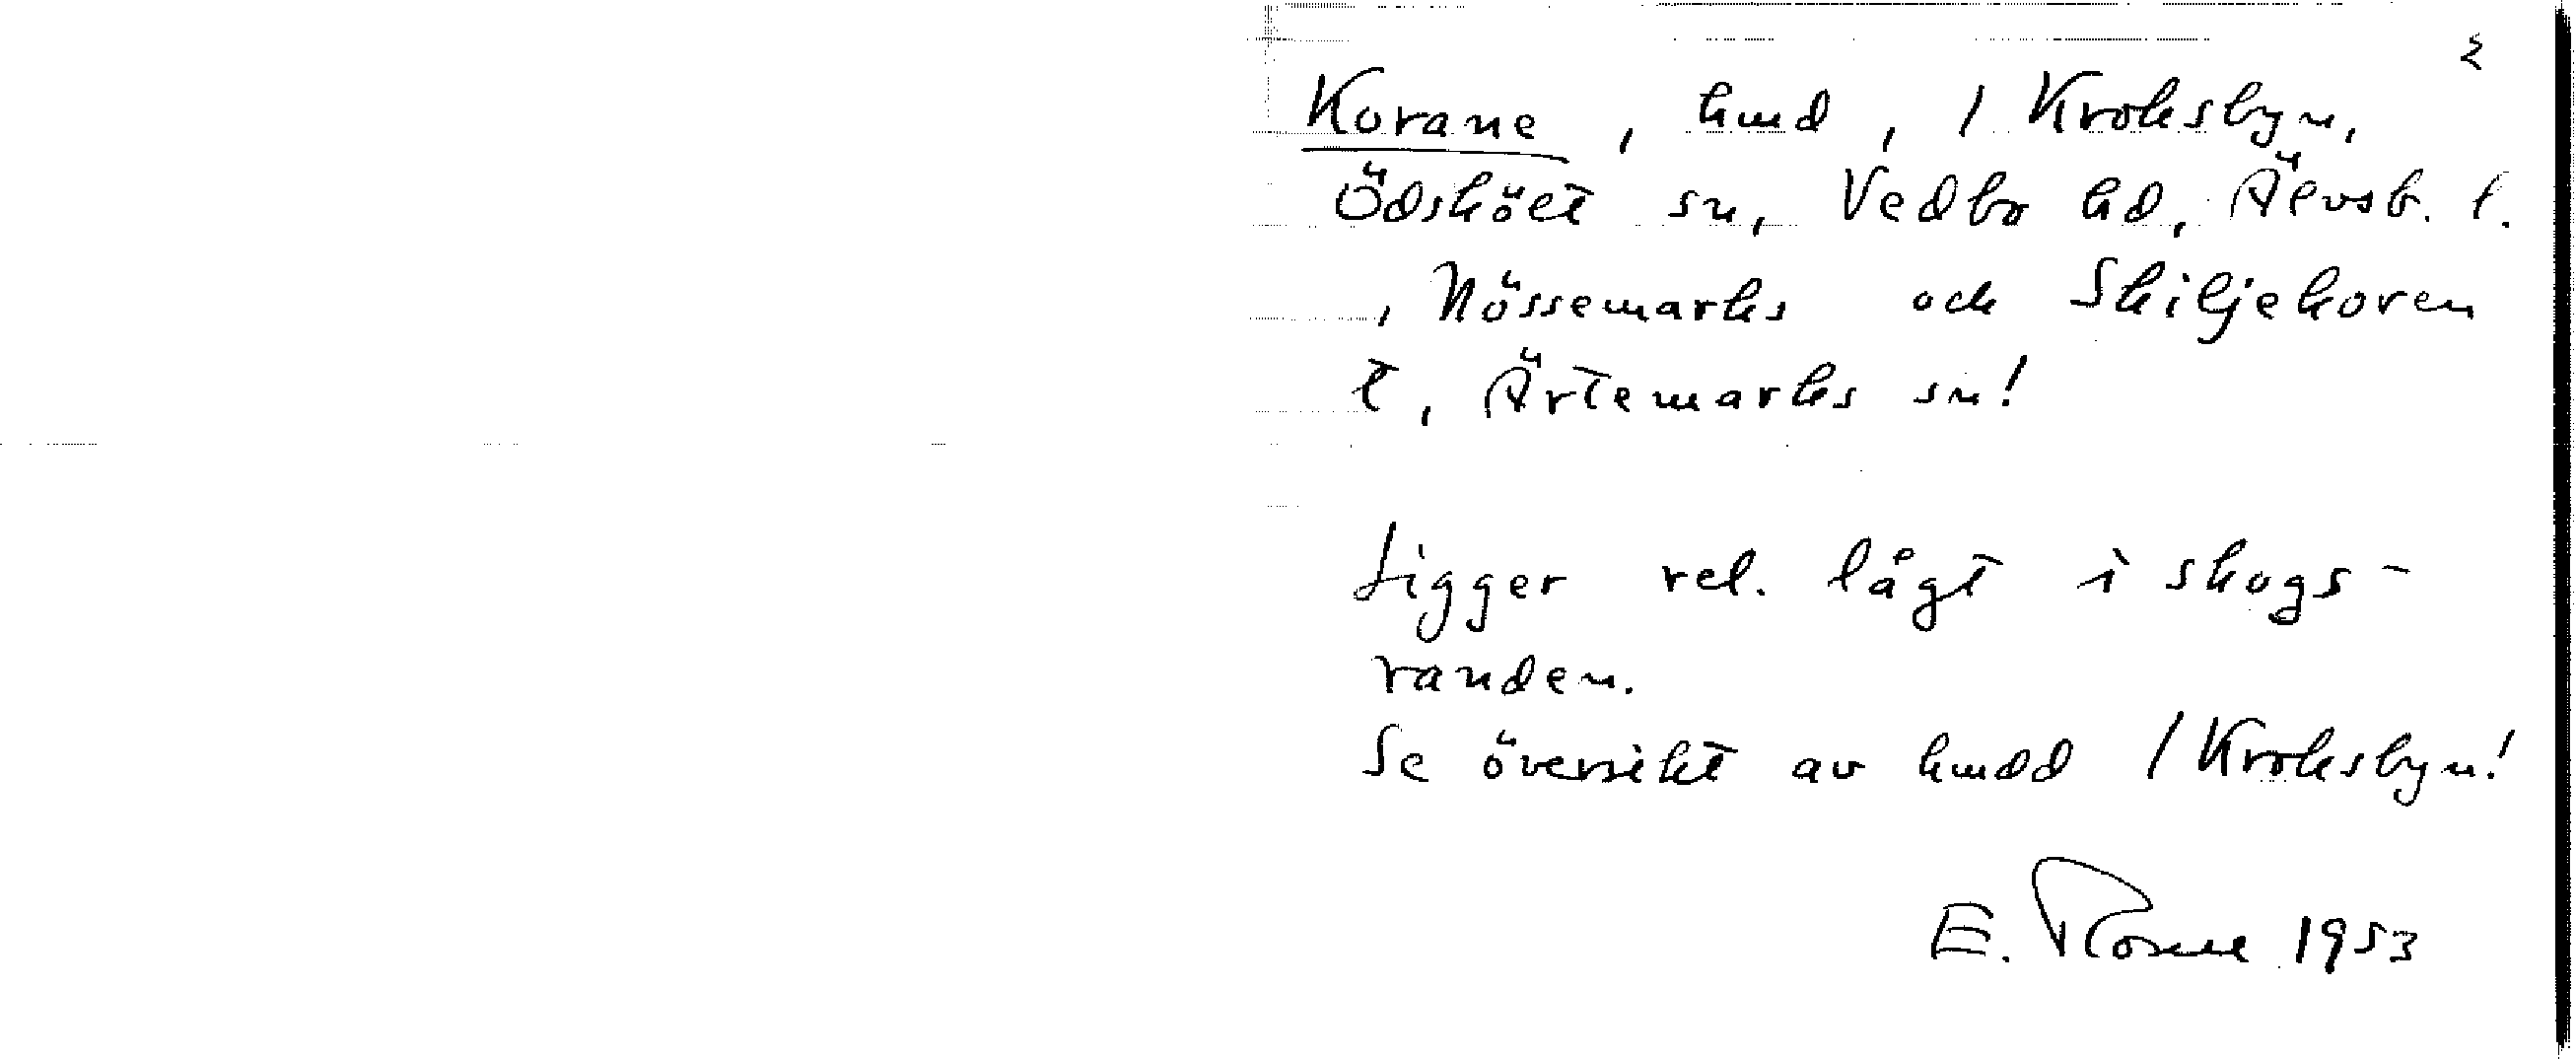 2
Korane, hmd, 1 Kroksbyn,
Ödskölt sn, Vedbo hd, Älvsb. l.
, Nössemarks och Skiljekoren
t, Ärtemarks sn!
Ligger rel. lågt i skogs-
randen.
Se översikt av hmdd 1 Kroksbyn!
E. Rosell 1953